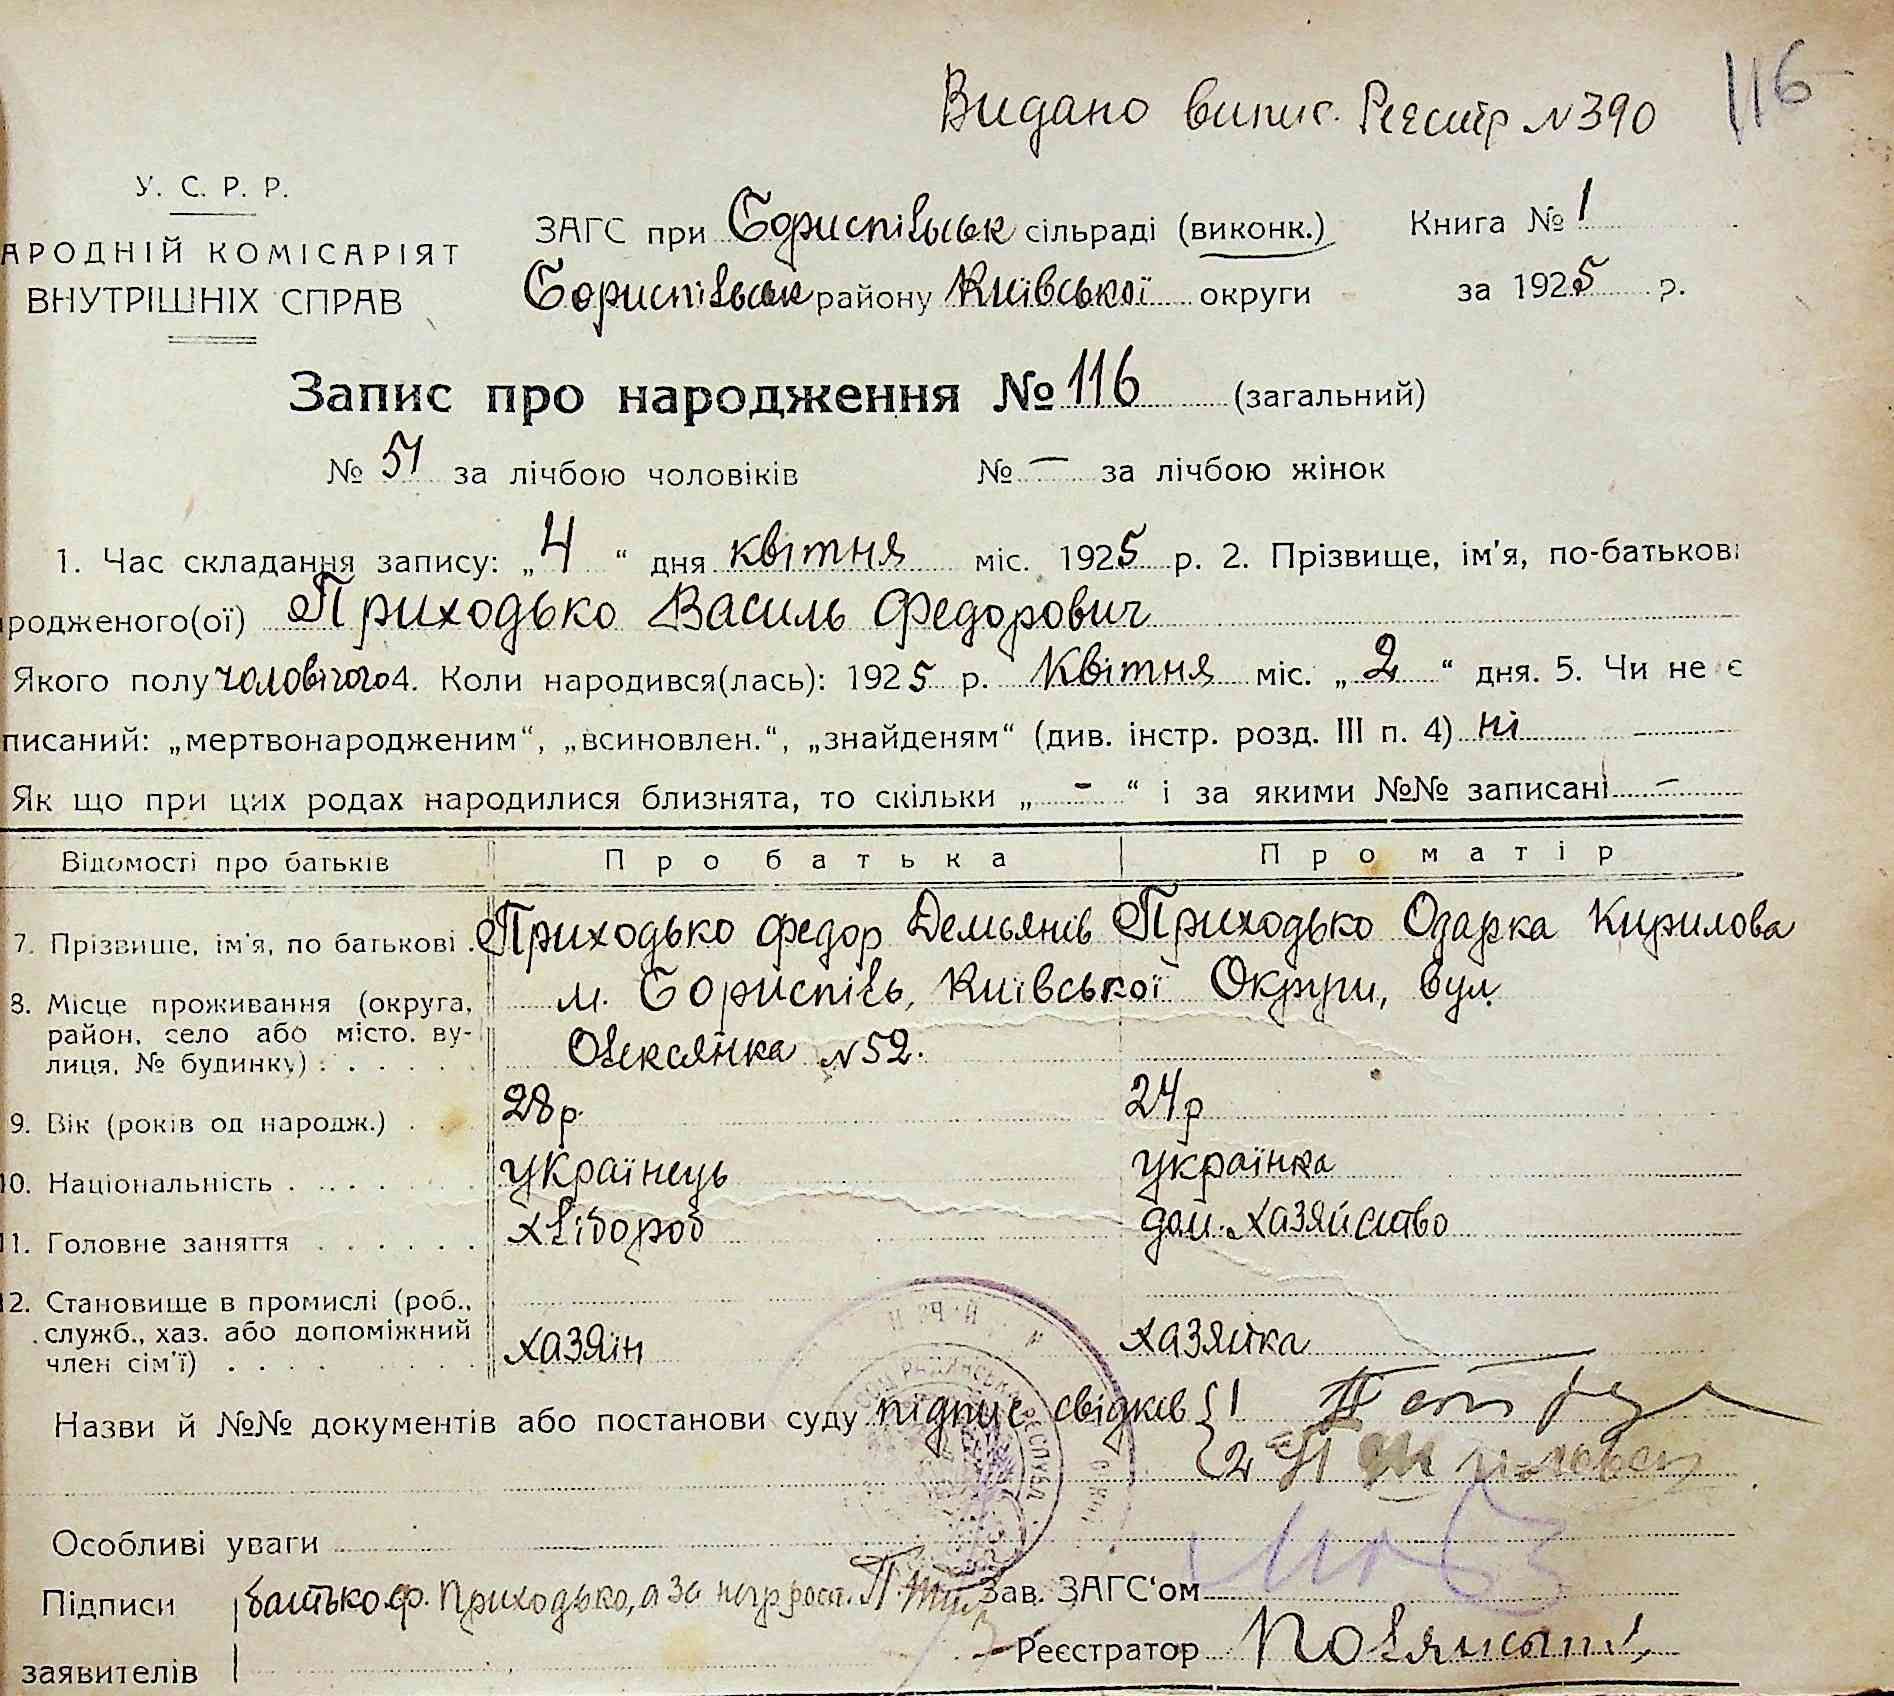 116
Видано випис. Реєстр N 390
У. С. Р. Р.
АРОДНІЙ КОМІСАРІЯТ
ВНУТРІШНІХ СПРАВ
ЗАГС при Бориспільськ сільраді (виконк.) Книга № 1
Бориспільськ району Київської округи за 1925 р.
Запис про народження № 116 (загальний)
№ 51 за лічбою чоловіків № — за лічбою жінок
1. Час складання запису: „4“ дня квітня міс. 1925 р. 2. Прізвище, ім'я, по-батькові
родженого(ої) Приходько Василь Федорович
Якого полу чоловічого 4. Коли народився(лась): 1925 р. Квітня міс. „2“ дня. 5. Чи не є
писаний: „мертвонародженим“, „всиновлен.“, „знайденям“ (див. інстр. розд. III п. 4) ні
Як що при цих родах народилися близнята, то скільки „-“ і за якими №№ записані —
Відомості про батьків Про батька Про матір
7. Прізвище, ім'я, по батькові . Приходько Федор Демьянів Приходько Одарка Кирилова
8. Місце проживання (округа, м. Бориспіль, Київської Округи, вул.
район, село або місто, ву-
лиця, № будинку) : . . . . . N 52.
9. Вік (років од народж.) . . 28 р. 24 р
10. Національність . . . . . . українець українка
11. Головне заняття . . . . . . хлібороб дом. хазяйство
12. Становище в промислі (роб.,
служб., хаз. або допоміжний хазяїн хазяйка
член сім'ї) . . . .
Назви й №№ документів або постанови суду підпис свідків { 1
2
Особливі уваги
Підписи батько ф. Приходько, а за Зав. ЗАГС'ом
Реєстратор
заявителів